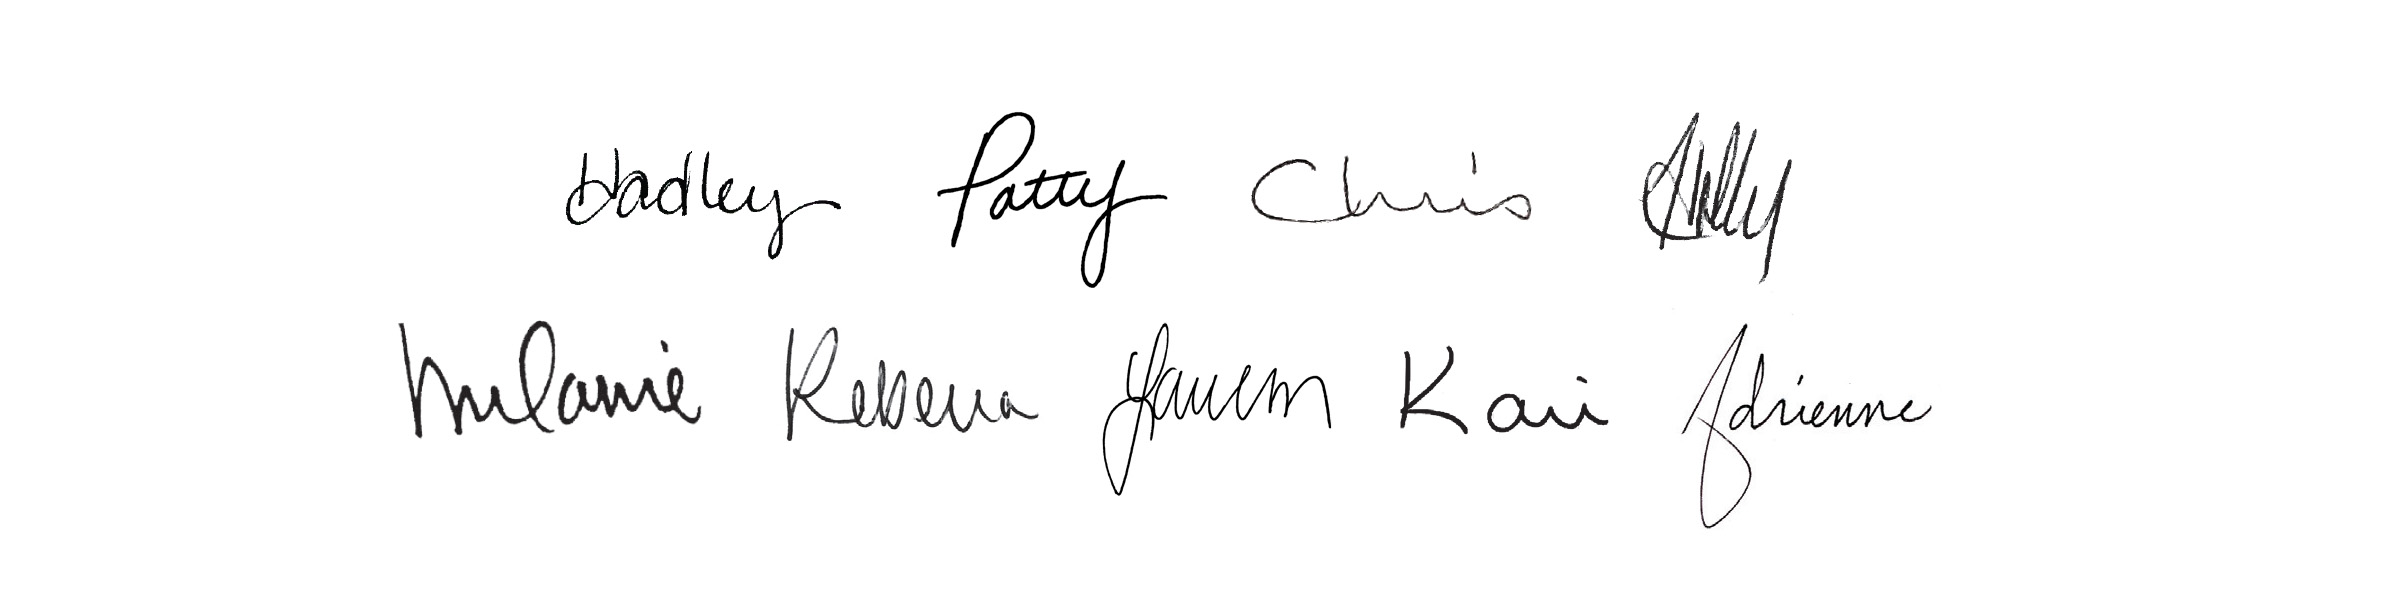 Hadley Patty Chris
Melanie Rebecca Lauren Kari Adrienne